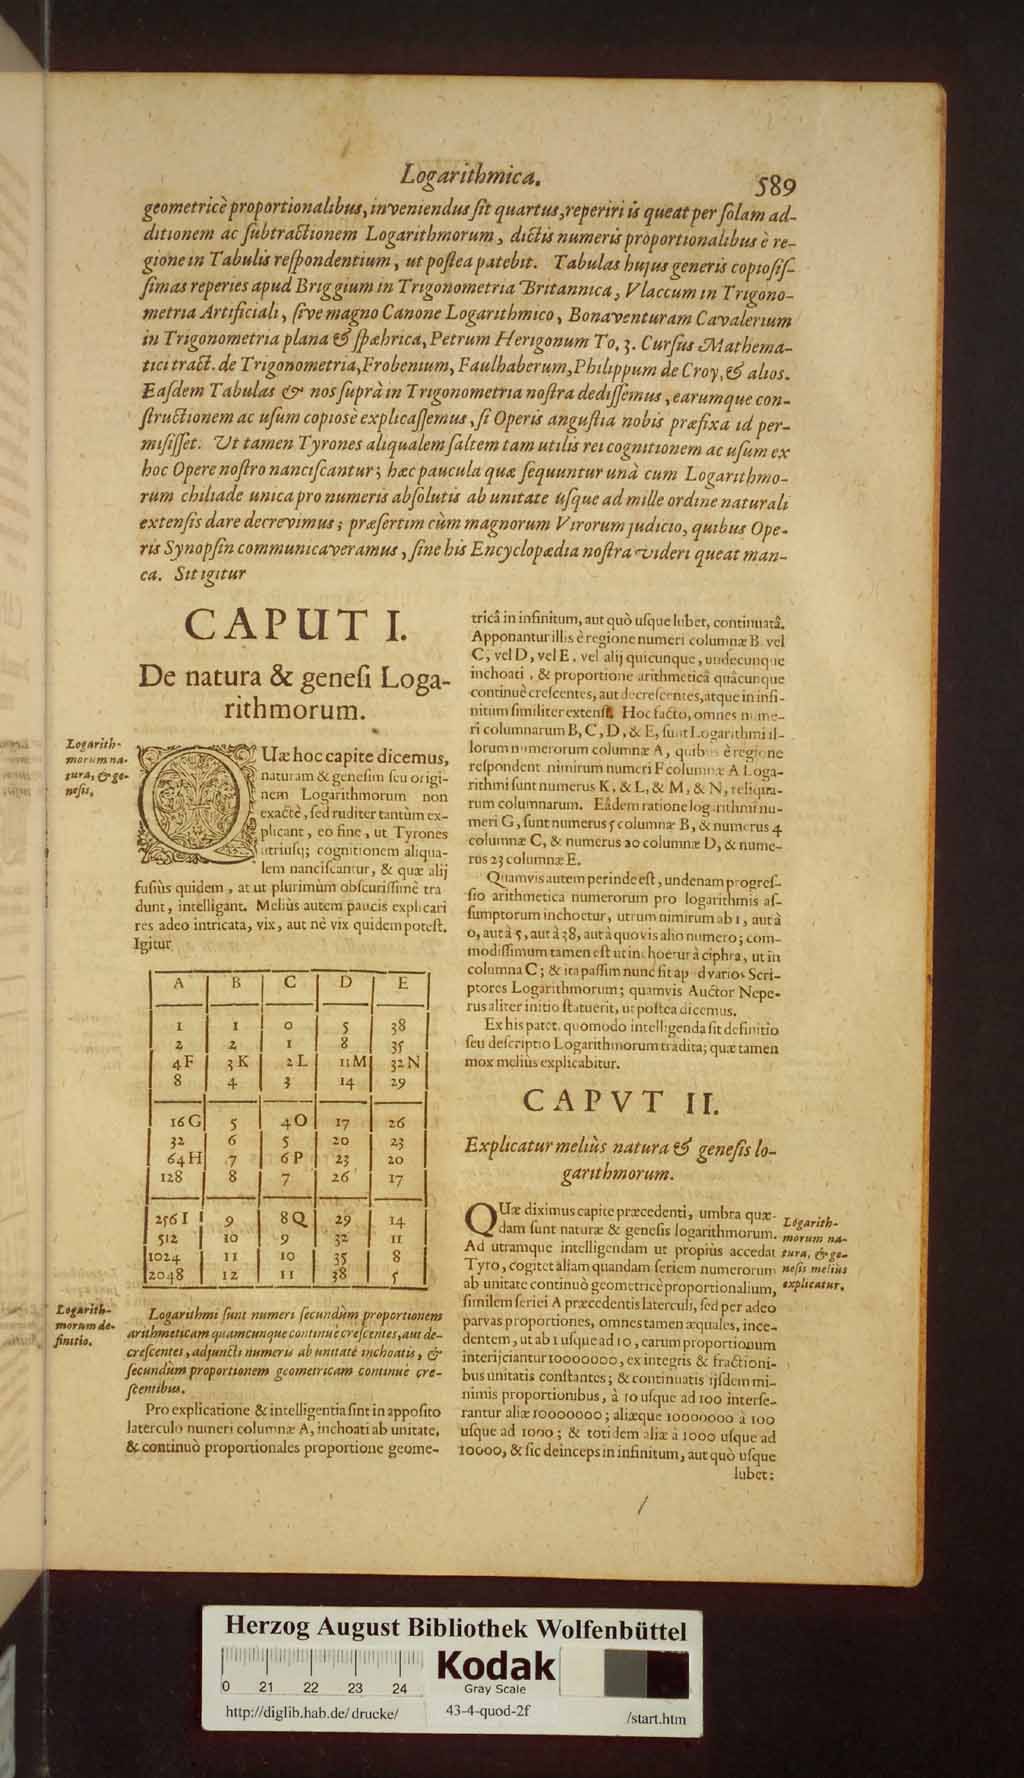 Logarithmica.
589
geometricè proportionalibus, inveniendus sit quartus, reperiri is queat per solam ad-
ditionem ac subtractionem Logarithmorum, dictis numeris proportionalibus è re-
gione in Tabulis respondentium, ut postea patebit. Tabulas hujus generis copiosis-
simas reperies apud Briggium in Trigonometria Britannica, Vlaccum in Trigono-
metria Artificiali, sive magno Canone Logarithmico, Bonaventuram Cavalerium
in Trigonometria plana & sphæhrica, Petrum Herigonum To, 3. Cursus Mathema-
tici tract. de Trigonometria, Frobenium, Faulhaberum, Philippum de Croy, & alios.
Easdem Tabulas & nos suprà in Trigonometria nostra dedissemus, earumque con-
structionem ac usum copiosè explicassemus, si Operis angustia nobis præfixa id per-
misisset. Ut tamen Tyrones aliqualem saltem tam utilis rei cognitionem ac usum ex
hoc Opere nostro nanciscantur; hæc paucula quæ sequuntur unà cum Logarithmo-
rum chiliade unica pro numeris absolutis ab unitate usque ad mille ordine naturali
extensis dare decrevimus; præsertim cùm magnorum Virorum judicio, quibus Ope-
ris Synopsin communicaveramus, sine his Encyclopædia nostra videri queat man-
ca. Sit igitur
CAPUT I.
De natura & genesi Loga-
rithmorum.
Logarith-
morum na-
tura, & ge-
nesis.
QUæ hoc capite dicemus,
naturam & genesim seu origi-
nem Logarithmorum non
exactè, sed ruditer tantùm ex-
plicant, eo fine, ut Tyrones
utriusq; cognitionem aliqua-
lem nanciscantur, & quæ alij
fusiùs quidem, at ut plurimùm obscurissimè tra
dunt, intelligant. Meliùs autem paucis explicari
res adeo intricata, vix, aut nè vix quidem potest.
Igitur
A B C D E
1 1 0 5 38
2 2 1 8 35
4F 3K 2L 11M 32N
8 4 3 14 29
16G 5 4O 17 26
32 6 5 20 23
64H 7 6P 23 20
128 8 7 26 17
256I 9 8Q 29 14
512 10 9 32 11
1024 11 10 35 8
2048 12 11 38 5
Logarith-
morum de-
finitio.
Logarithmi sunt numeri secundùm proportionem
arithmeticam quamcunque continuè crescentes, aut de-
crescentes, adjuncti numeris ab unitate inchoatis, &
secundùm proportionem geometricam continuè cre-
scentibus.
Pro explicatione & intelligentia sint in apposito
laterculo numeri columnæ A, inchoati ab unitate,
& continuò proportionales proportione geome-
tricâ in infinitum, aut quò usque lubet, continuatâ.
Apponantur illis è regione numeri columnæ B vel
C, vel D, vel E, vel alij quicunque, undecunque
inchoati, & proportione arithmeticâ quâcunque
continuè crescentes, aut decrescentes, atque in infi-
nitum similiter extensi. Hoc facto, omnes nume-
ri columnarum B, C, D, & E, sunt Logarithmi il-
lorum numerorum columnæ A, quibus è regione
respondent. nimirum numeri F columnæ A Loga-
rithmi sunt numerus K, & L, & M, & N, reliqua-
rum columnarum. Eâdem ratione logarithmi nu-
meri G, sunt numerus 5 columnæ B, & numerus 4
columnæ C, & numerus 20 columnæ D, & nume-
rus 23 columnæ E.
Quamvis autem perinde est, undenam progres-
sio arithmetica numerorum pro logarithmis as-
sumptorum inchoetur, utrum nimirum ab 1, aut à
0, aut à 5, aut à 38, aut à quovis alio numero; com-
modissimum tamen est ut inchoetur à ciphra, ut in
columna C; & ita passim nunc fit apud varios Scri-
ptores Logarithmorum; quamvis Auctor Nepe-
rus aliter initio statuerit, ut postea dicemus.
Ex his patet, quomodo intelligenda sit definitio
seu descriptio Logarithmorum tradita; quæ tamen
mox meliùs explicabitur.
CAPVT II.
Explicatur meliùs natura & genesis lo-
garithmorum.
QUæ diximus capite præcedenti, umbra quæ-
dam sunt naturæ & genesis logarithmorum.
Ad utramque intelligendam ut propiùs accedat
Tyro, cogitet aliam quandam seriem numerorum
ab unitate continuò geometricè proportionalium,
similem seriei A præcedentis laterculi, sed per adeo
parvas proportiones, omnes tamen æquales, ince-
dentem, ut ab 1 usque ad 10, earum proportionum
interijciantur 10000000, ex integris & fractioni-
bus unitatis constantes; & continuatis ijsdem mi-
nimis proportionibus, à 10 usque ad 100 interse-
rantur aliæ 10000000; aliæque 10000000 à 100
usque ad 1000; & totidem aliæ à 1000 usque ad
10000, & sic deinceps in infinitum, aut quò usque
lubet:
Logarith-
morum na-
tura, & ge-
nesis melius
explicatur.
Herzog August Bibliothek Wolfenbüttel
0 21 22 23 24
Kodak
Gray Scale
http://diglib.hab.de/drucke/
43-4-quod-2f
/start.htm